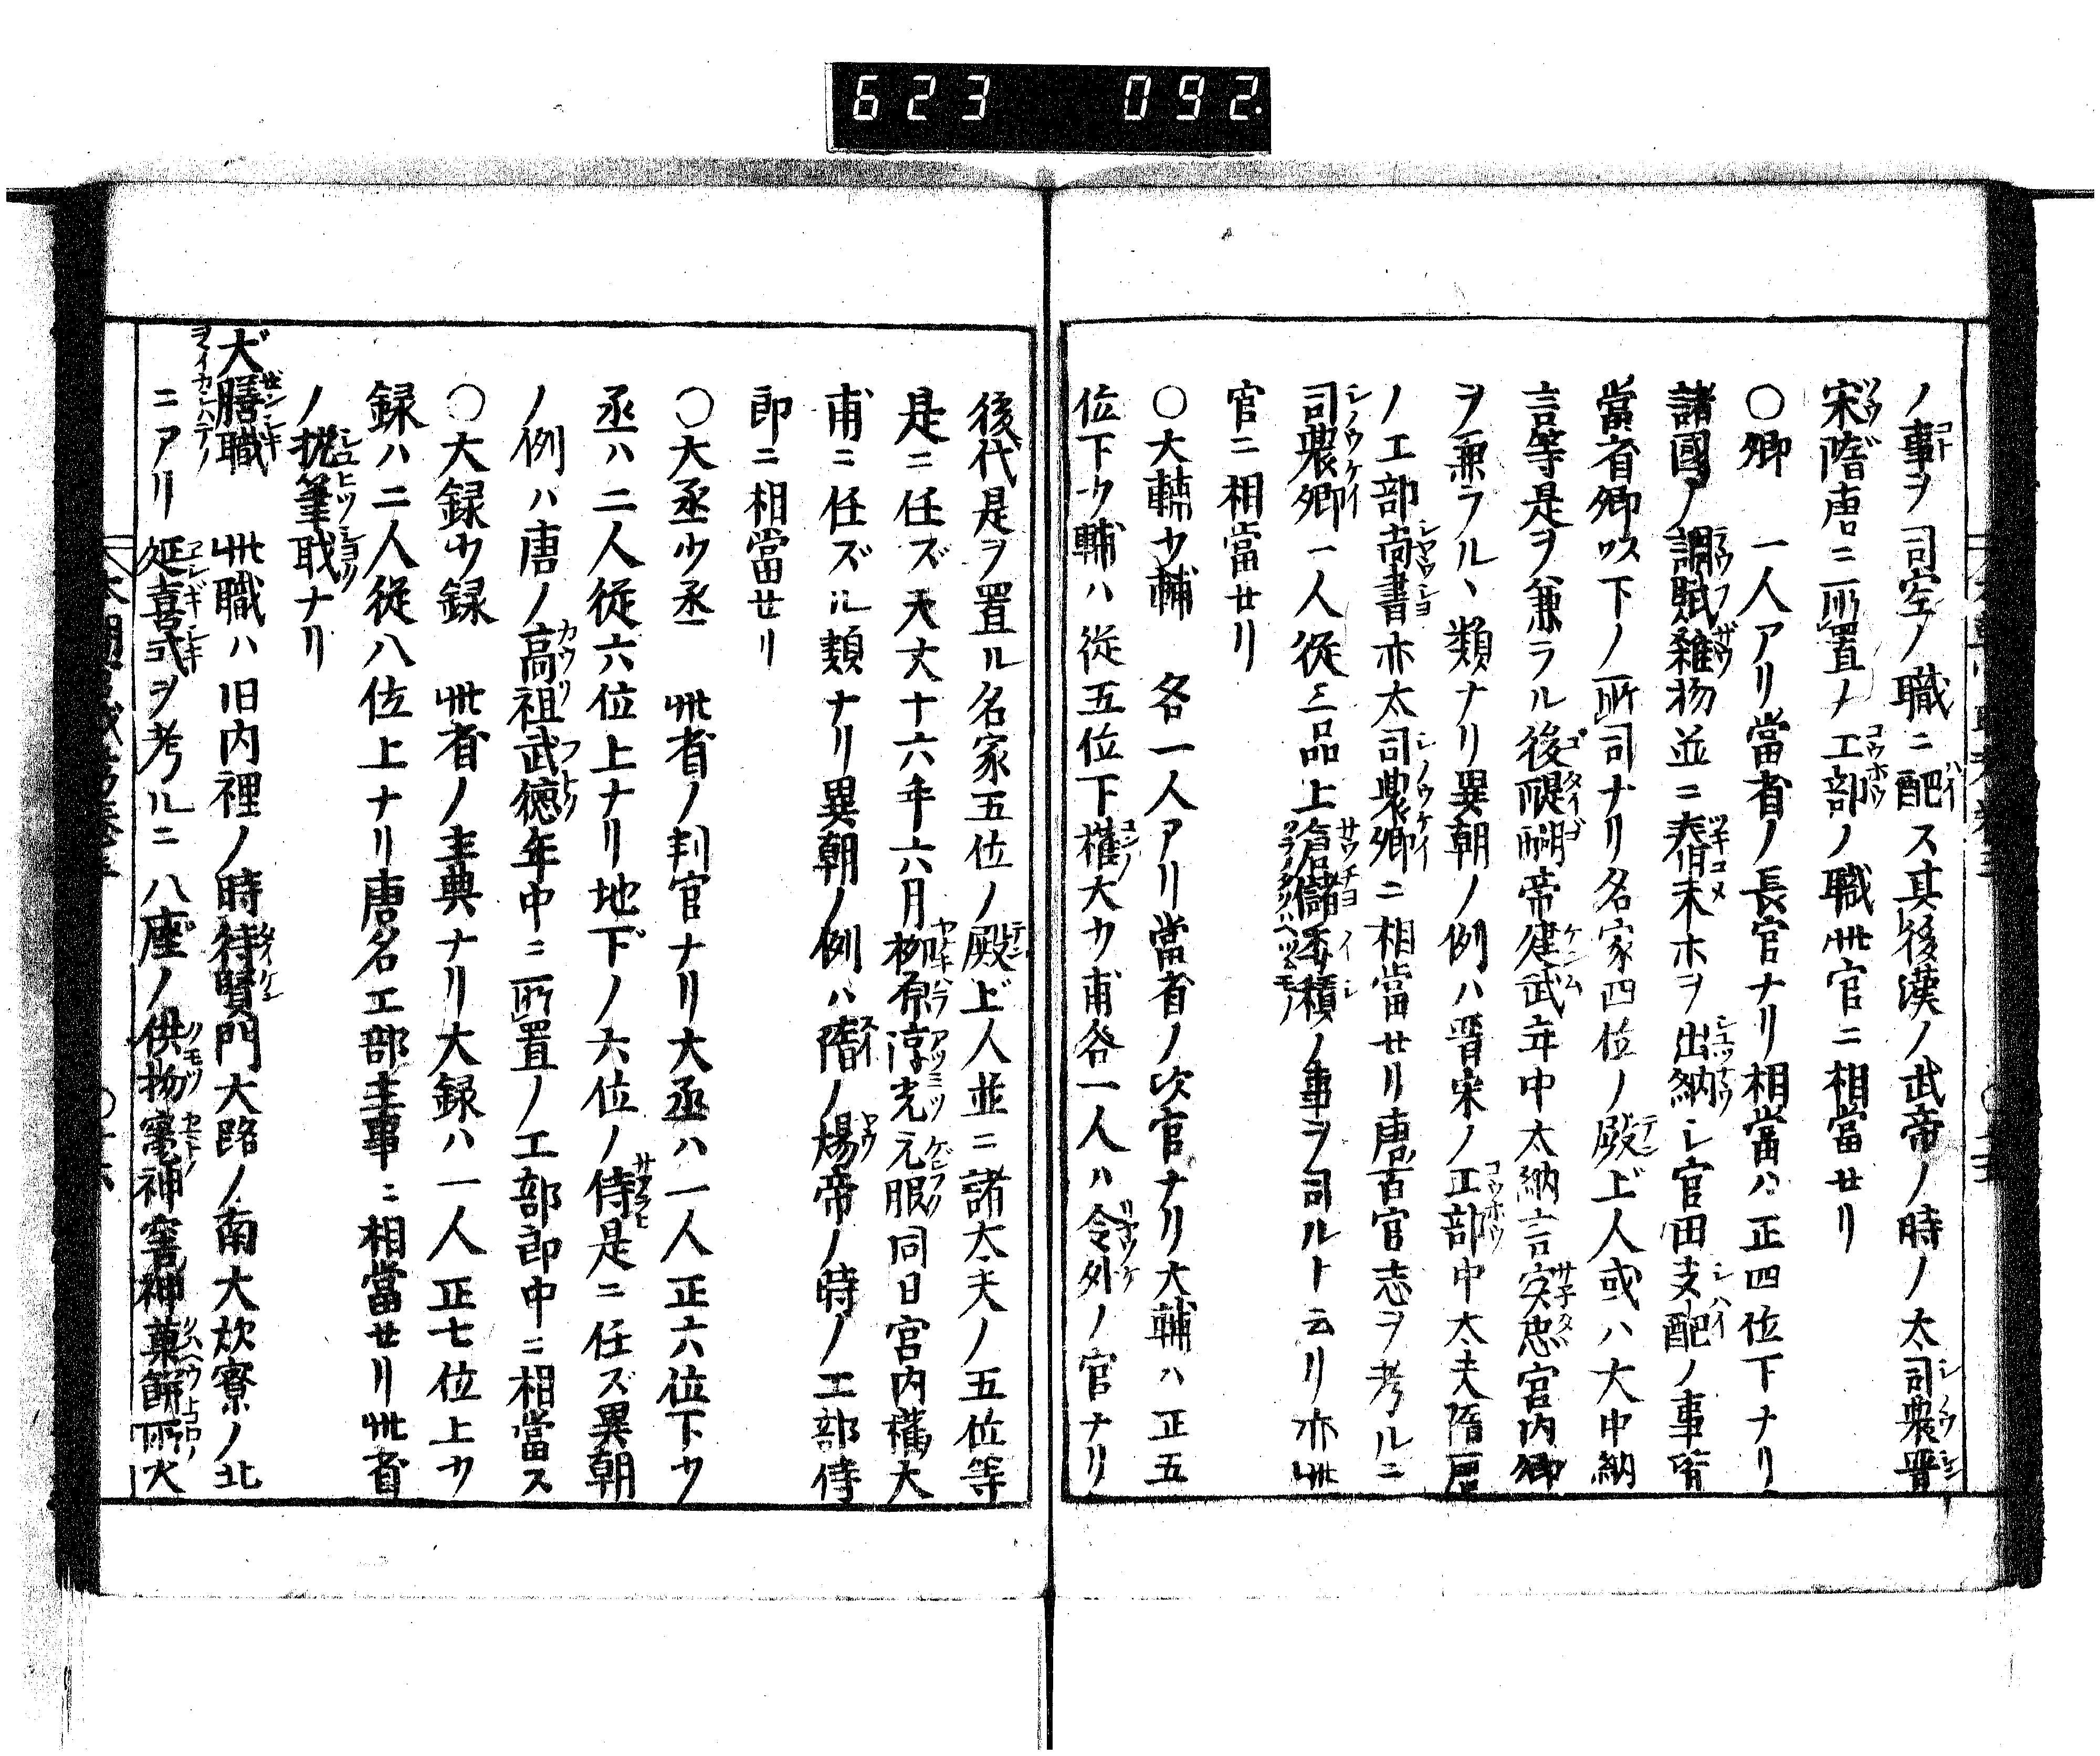 623 092.
ノ事ヲ司空ノ職ニ配ス其後漢ノ武帝ノ時ノ太司農晋
宋隋唐ニ所置ナ工部ノ職此官ニ相當せリ
○卿 一人アリ當省ノ長官ナリ相當ハ正四位下ナリ
諸國ノ調賦雜物並ニ舂米ホヲ出納シ官田支配ノ事皆
當省卿以下ノ所司ナリ名家四位ノ殿上人或ハ大中納
言等是ヲ兼ラル後醍醐帝建武年中大納言実忠宮内卿
ヲ兼ラルヽ類ナリ異朝ノ例ハ晋宋ノ工部中大夫隋唐
ノ工部尚書亦太司農卿ニ相當せリ唐百官志ヲ考ルニ
司農卿一人従三品上倉儲委積ノ事ヲ司ルト云リ亦此
官ニ相當せリ
○大輔少輔 各一人アリ當省ノ次官ナリ大輔ハ正五
位下少輔ハ従五位下權大少甫各一人ハ令外ノ官ナリ
後代是ヲ置ル名家五位ノ殿上人並ニ諸大夫ノ五位等
是ニ任ズ天文十六年六月柳原淳光元服同日宮内權大
甫ニ任ズル類ナリ異朝ノ例ハ隋ノ煬帝ノ時ノ工部侍
郎ニ相當せリ
○大丞少丞 此省ノ判官ナリ大丞ハ一人正六位下少
丞ハ二人従六位上ナリ地下ノ六位ノ侍是ニ任ズ異朝
ノ例ハ唐ノ高祖武徳年中ニ所置ノ工部郎中ニ相當ス
○大録少録 此省ノ主典ナリ大録ハ一人正七位上少
録ハ二人従八位上ナリ唐名工部主事ニ相當せリ此省
ノ執筆職ナリ
大膳職 此職ハ旧内裡ノ時待賢門大路ノ南大炊寮ノ北
ニアリ延喜式ヲ考ルニ八座ノ供物竈神窖神菓餅所火